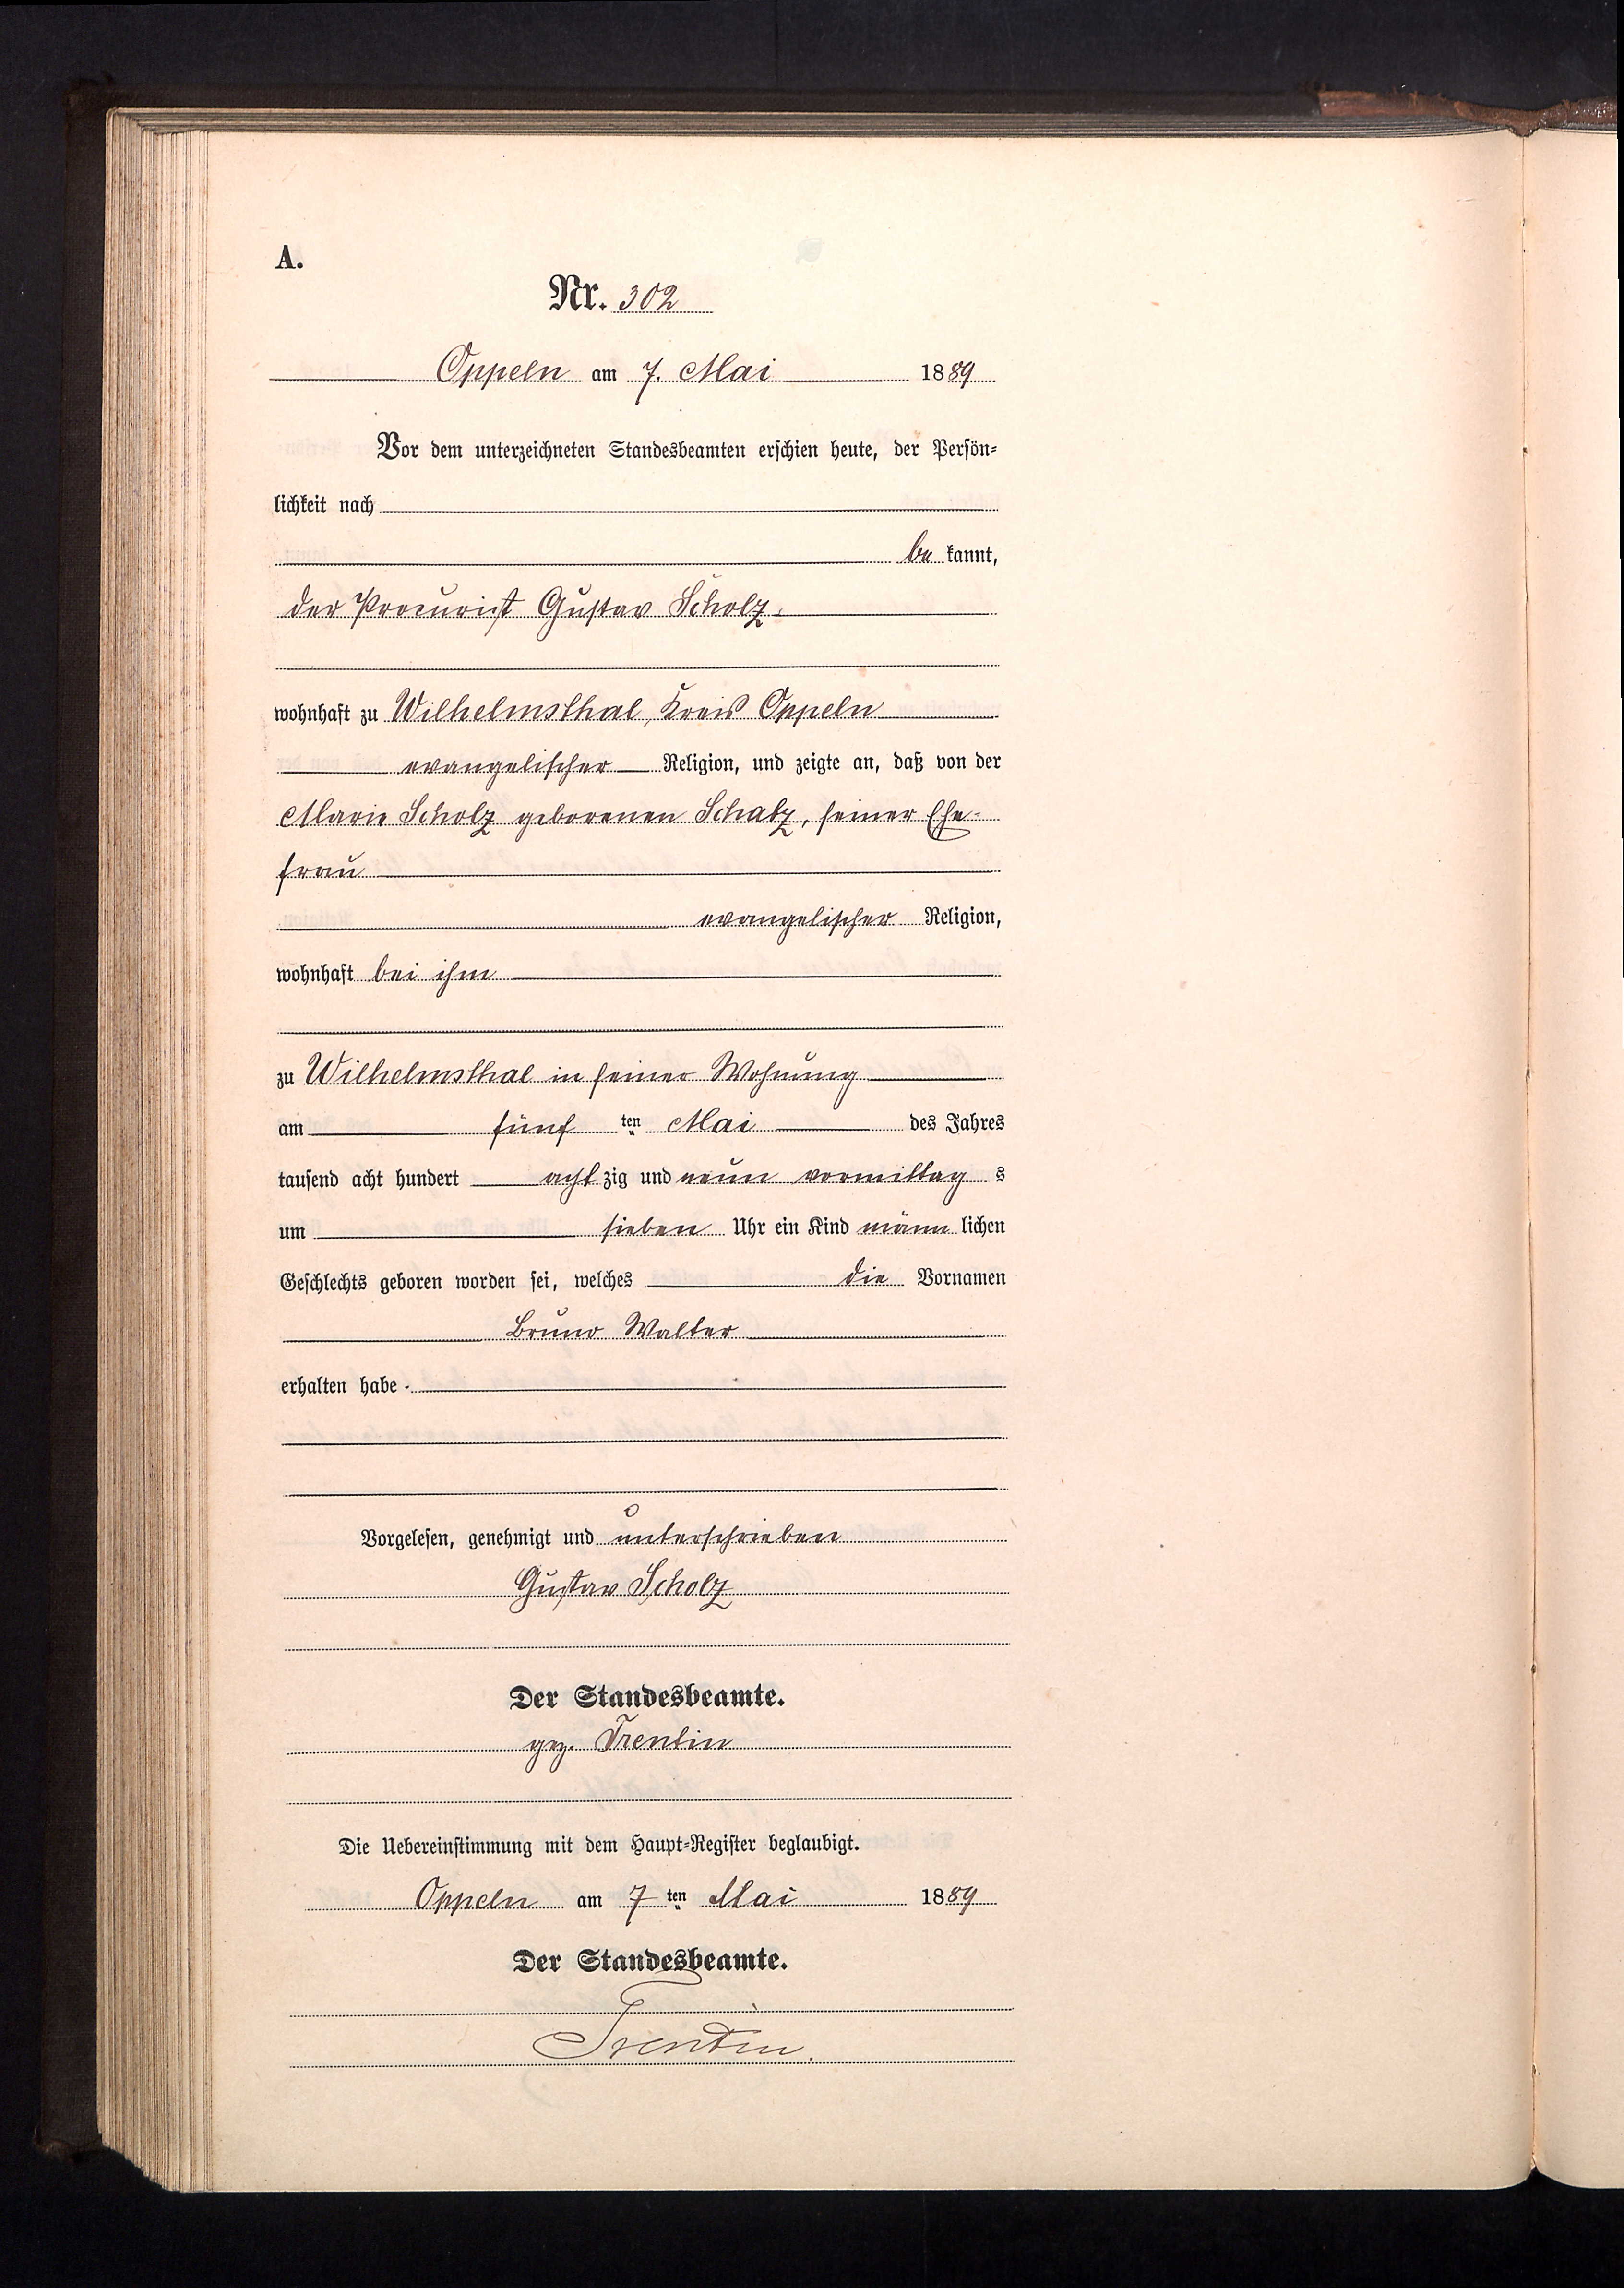 A.
Nr. 302
Oppeln am 7. Mai 1889
Vor dem unterzeichneten Standesbeamten erschien heute, der Persön-
lichkeit nach
be kannt,
der Procurist Gustav Scholz,
wohnhaft zu Wilhelmsthal, Kreis Oppeln
evangelischer Religion, und zeigte an, daß von der
Marie Scholz geborenen Schatz, seiner Ehe-
frau
evangelischer Religion,
wohnhaft bei ihm
zu Wilhelmsthal in seiner Wohnung
am fünf ten Mai des Jahres
tausend acht hundert acht zig und neun vormittag s
um sieben Uhr ein Kind männ lichen
Geschlechts geboren worden sei, welches die Vornamen
Bruno Walter
erhalten habe.
Vorgelesen, genehmigt und unterschrieben
Gustav Scholz
Der Standesbeamte.
gez. Trentin
Die Uebereinstimmung mit dem Haupt-Register beglaubigt.
Oppeln am 7 ten Mai 1889
Der Standesbeamte.
Trentin.